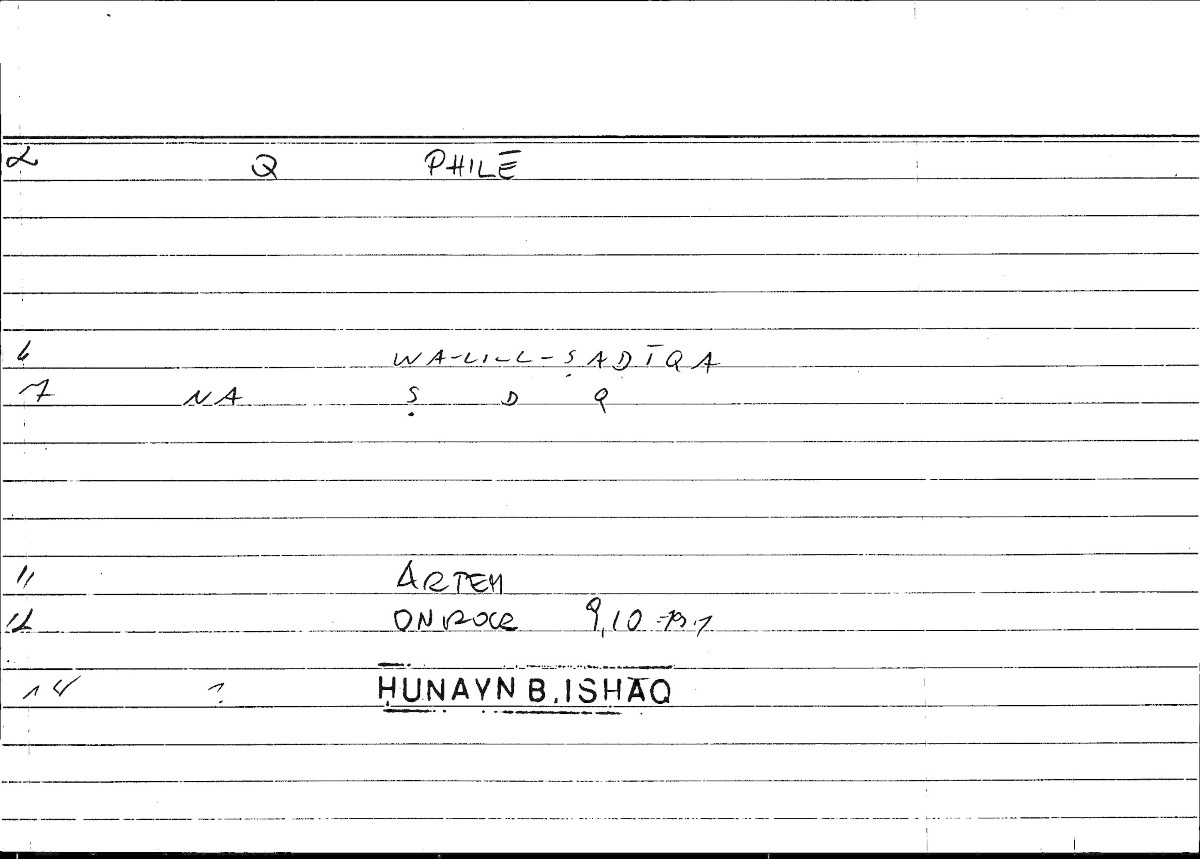 2 Q PHILĒ
6 WA-LIL-L-ṢADĪQA
7 NA Ṣ D Q
11 ARTEM
12 ONIROCR 9,10
14 1 ḤUNAYN B. ISḤĀQ